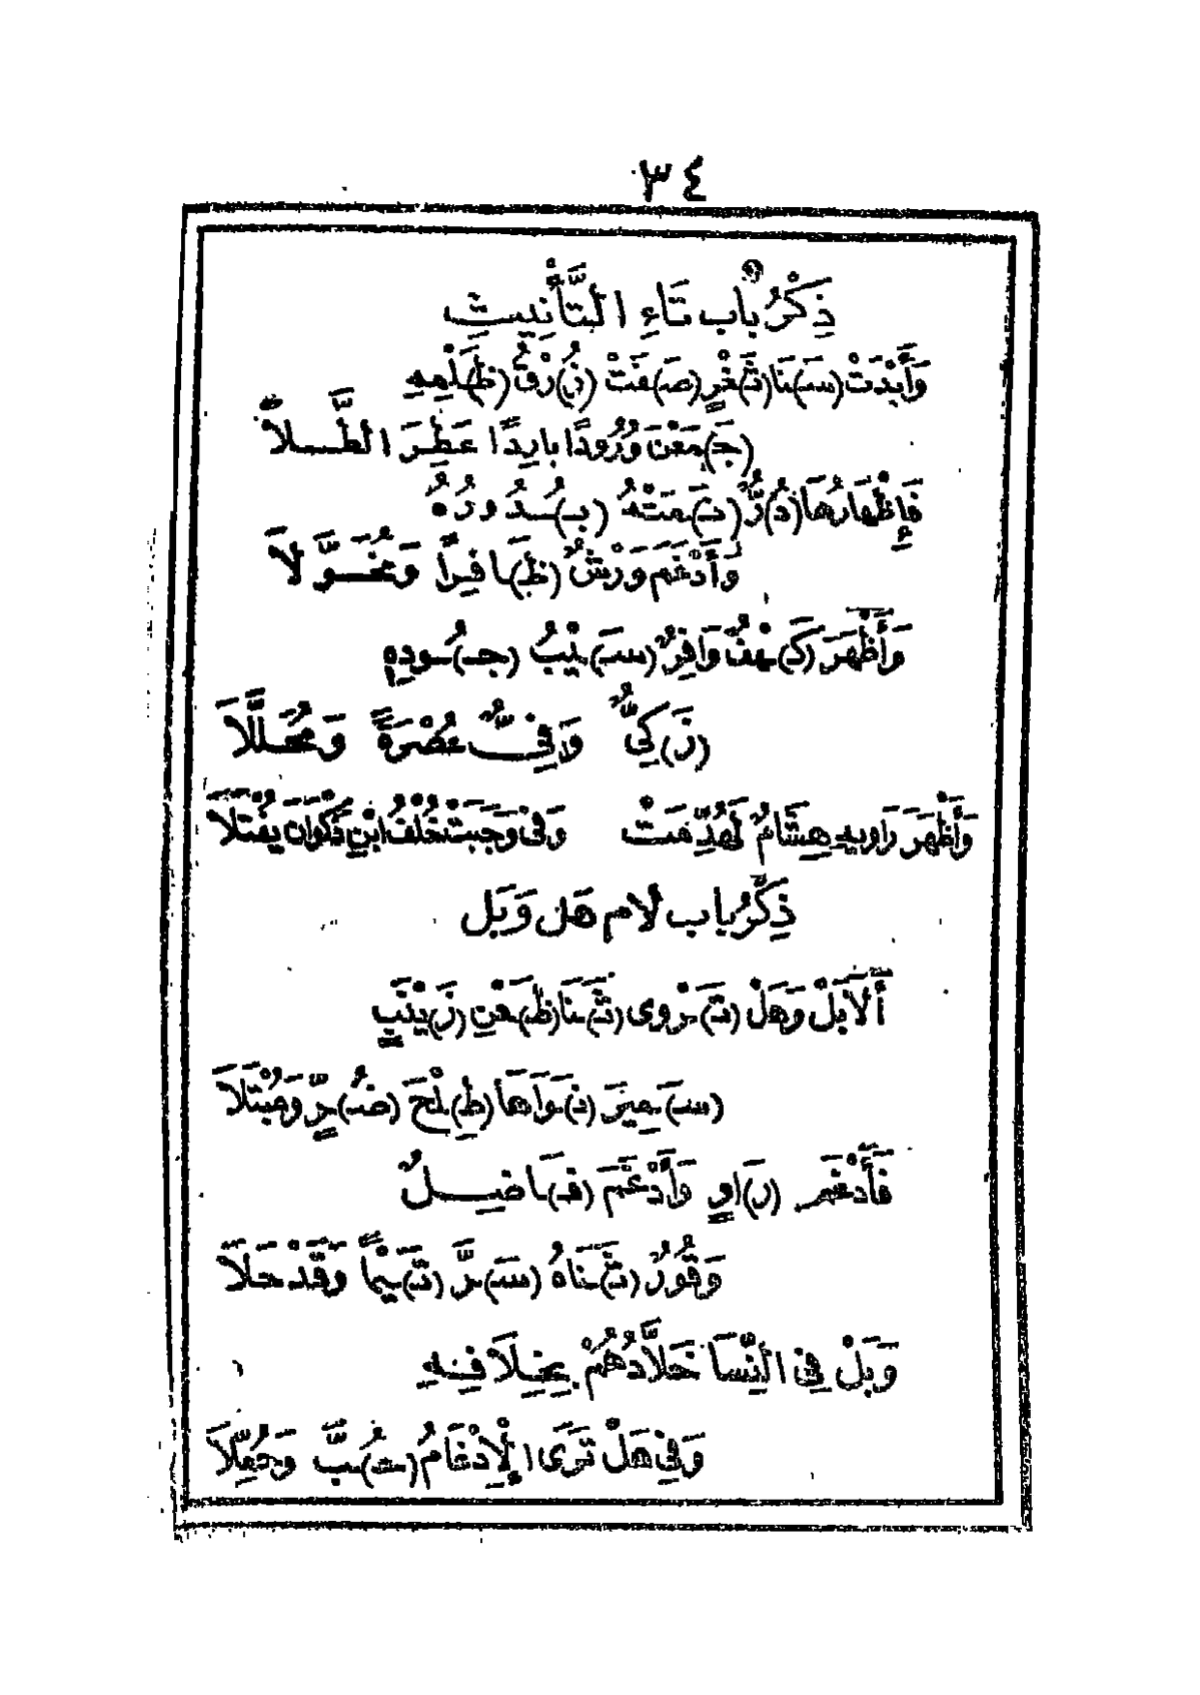 ٣٤
ذِكْرُ بَاب تَاءِ التَّأْنِيثِ
وَأَبْدَتْ (سَـ)ـنَا (ثَـ)ـغْرٍ (صَـ)ـفَتْ (زُ)رْقُ (ظَـ)ـلْمِهِ
(جَـ)ـمَعْنَ وُرُودًا بَارِدًا عَطِرَ الطَّـلاَ
فَإِظْهَارُهَا (دُ)رٌّ (نَـ)ـمَتْهُ (بُـ)ـدُورُهُ
وَأَدْغَمَ وَرْشٌ (ظَـ)ـافِرًا وَمُخَوَّلاَ
وَأَظْهَرَ (كَـ)ـهْفٌ وَافِرٌ (سَـ)ـيْبُ (جُـ)ـودِهِ
(زَ)كِيٌّ وَفِيٌّ عُصْرَةً وَمُحَلَّلاَ
وَأَظْهَرَ رَاوِيهِ هِشَامٌ لَهُدِّمَتْ وَفِى وَجَبَتْ خُلْفُ ابْنِ ذَكْوَانَ يُفْتَلاَ
ذِكْرُ بَاب لاَم هَل وَبَل
أَلاَ بَلْ وَهَلْ (تَـ)ـرْوِى (ثَـ)ـنَا (ظَـ)ـعْنِ (زَ)يْنَبٍ
(سَـ)ـمِيرَ (نَـ)ـوَاهَا (طِـ)ـلْحَ (ضُـ)ـرٍّ وَمُبْتَلاَ
فَأَدْغَمَـ (رَ)اوٍ وَأَدْغَمَ (فَـ)ـاضِـلٌ
وَقُورٌ (ثَـ)ـنَاهُ (سَـ)ـرَّ (تَـ)ـيْمًا وَقَدْ حَلاَ
وَبَلْ فِى النِّسَا خَلاَّدُهُمْ بِخِلاَفِهِ
وَفِى هَلْ تَرَى الْإِدْغَامُ (حُـ)ـبَّ وَحُمِّلاَ